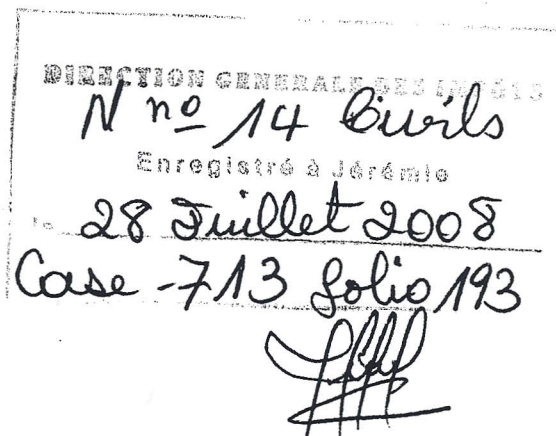 DIRECTION GENERALE DES IMPÔTS
N nº 14 Civils
Enregistré à Jérémie
le 28 Juillet 2008
Case -713 folio 193